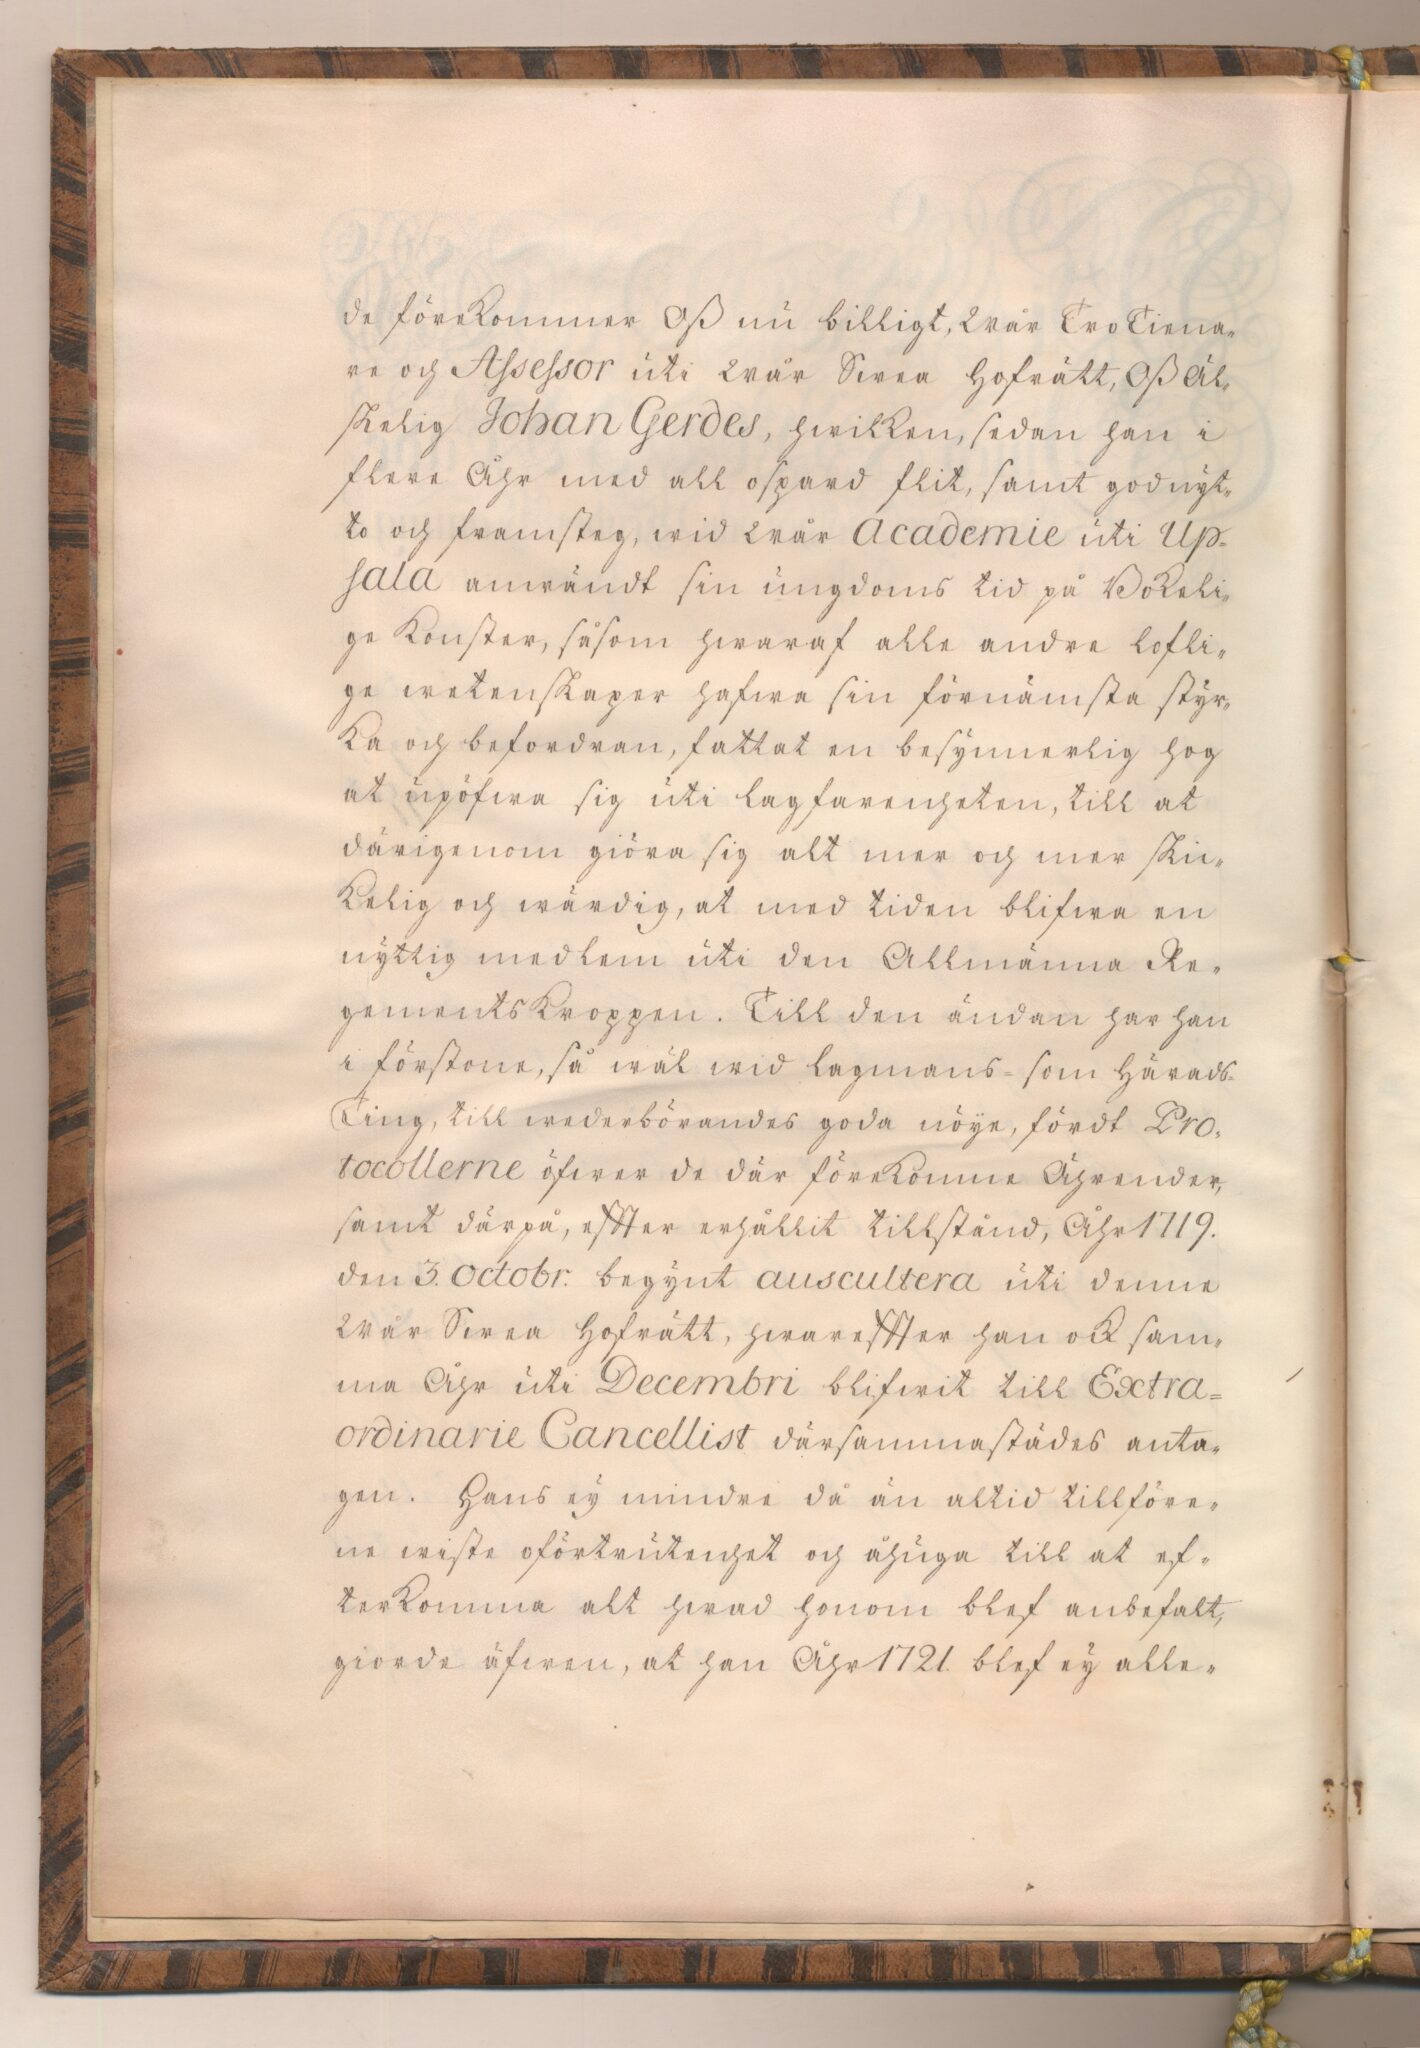 de förekommer Oß nu billigt, Wår Tro Tiena-
re och Assessor uti Wår Swea Hofrätt, Oß Äl-
skelig Johan Gerdes, hwilken, sedan han i
flere Åhr med all ospard flit, samt god nyt-
to och framsteg, wid Wår Academie uti Up-
sala anwändt sin ungdoms tid på Bokeli-
ge Konster, såsom hwaraf alle andre lofli-
ge wetenskaper hafwa sin förnämsta styr-
ka och befordran, fattat en besynnerlig hog
at upöfwa sig uti lagfarenheten, till at
därigenom giöra sig alt mer och mer skic-
kelig och wärdig, at med tiden blifwa en
nyttig medlem uti den Allmänna Re-
gementskroppen. Till den ändan har han
i förstone, så wäl wid Lagmans- som Härads-
Ting, till wederbörandes goda nöye, fördt Pro-
tocollerne öfwer de där förekomne Ährender,
samt därpå, effter erhållit tillstånd, Åhr 1719.
den 3. Octobr. begynt auscultera uti denne
Wår Swea Hofrätt, hwareffter han ock sam-
ma Åhr uti Decembri blifwit till Extra-
ordinarie Cancellist därsammastädes anta-
gen. Hans ey mindre då än altid tillföre-
ne wiste oförtrutenhet och åhuga till at ef-
terkomma alt hwad honom blef anbefalt,
giorde äfwen, at han Åhr 1721. blef ey alle-